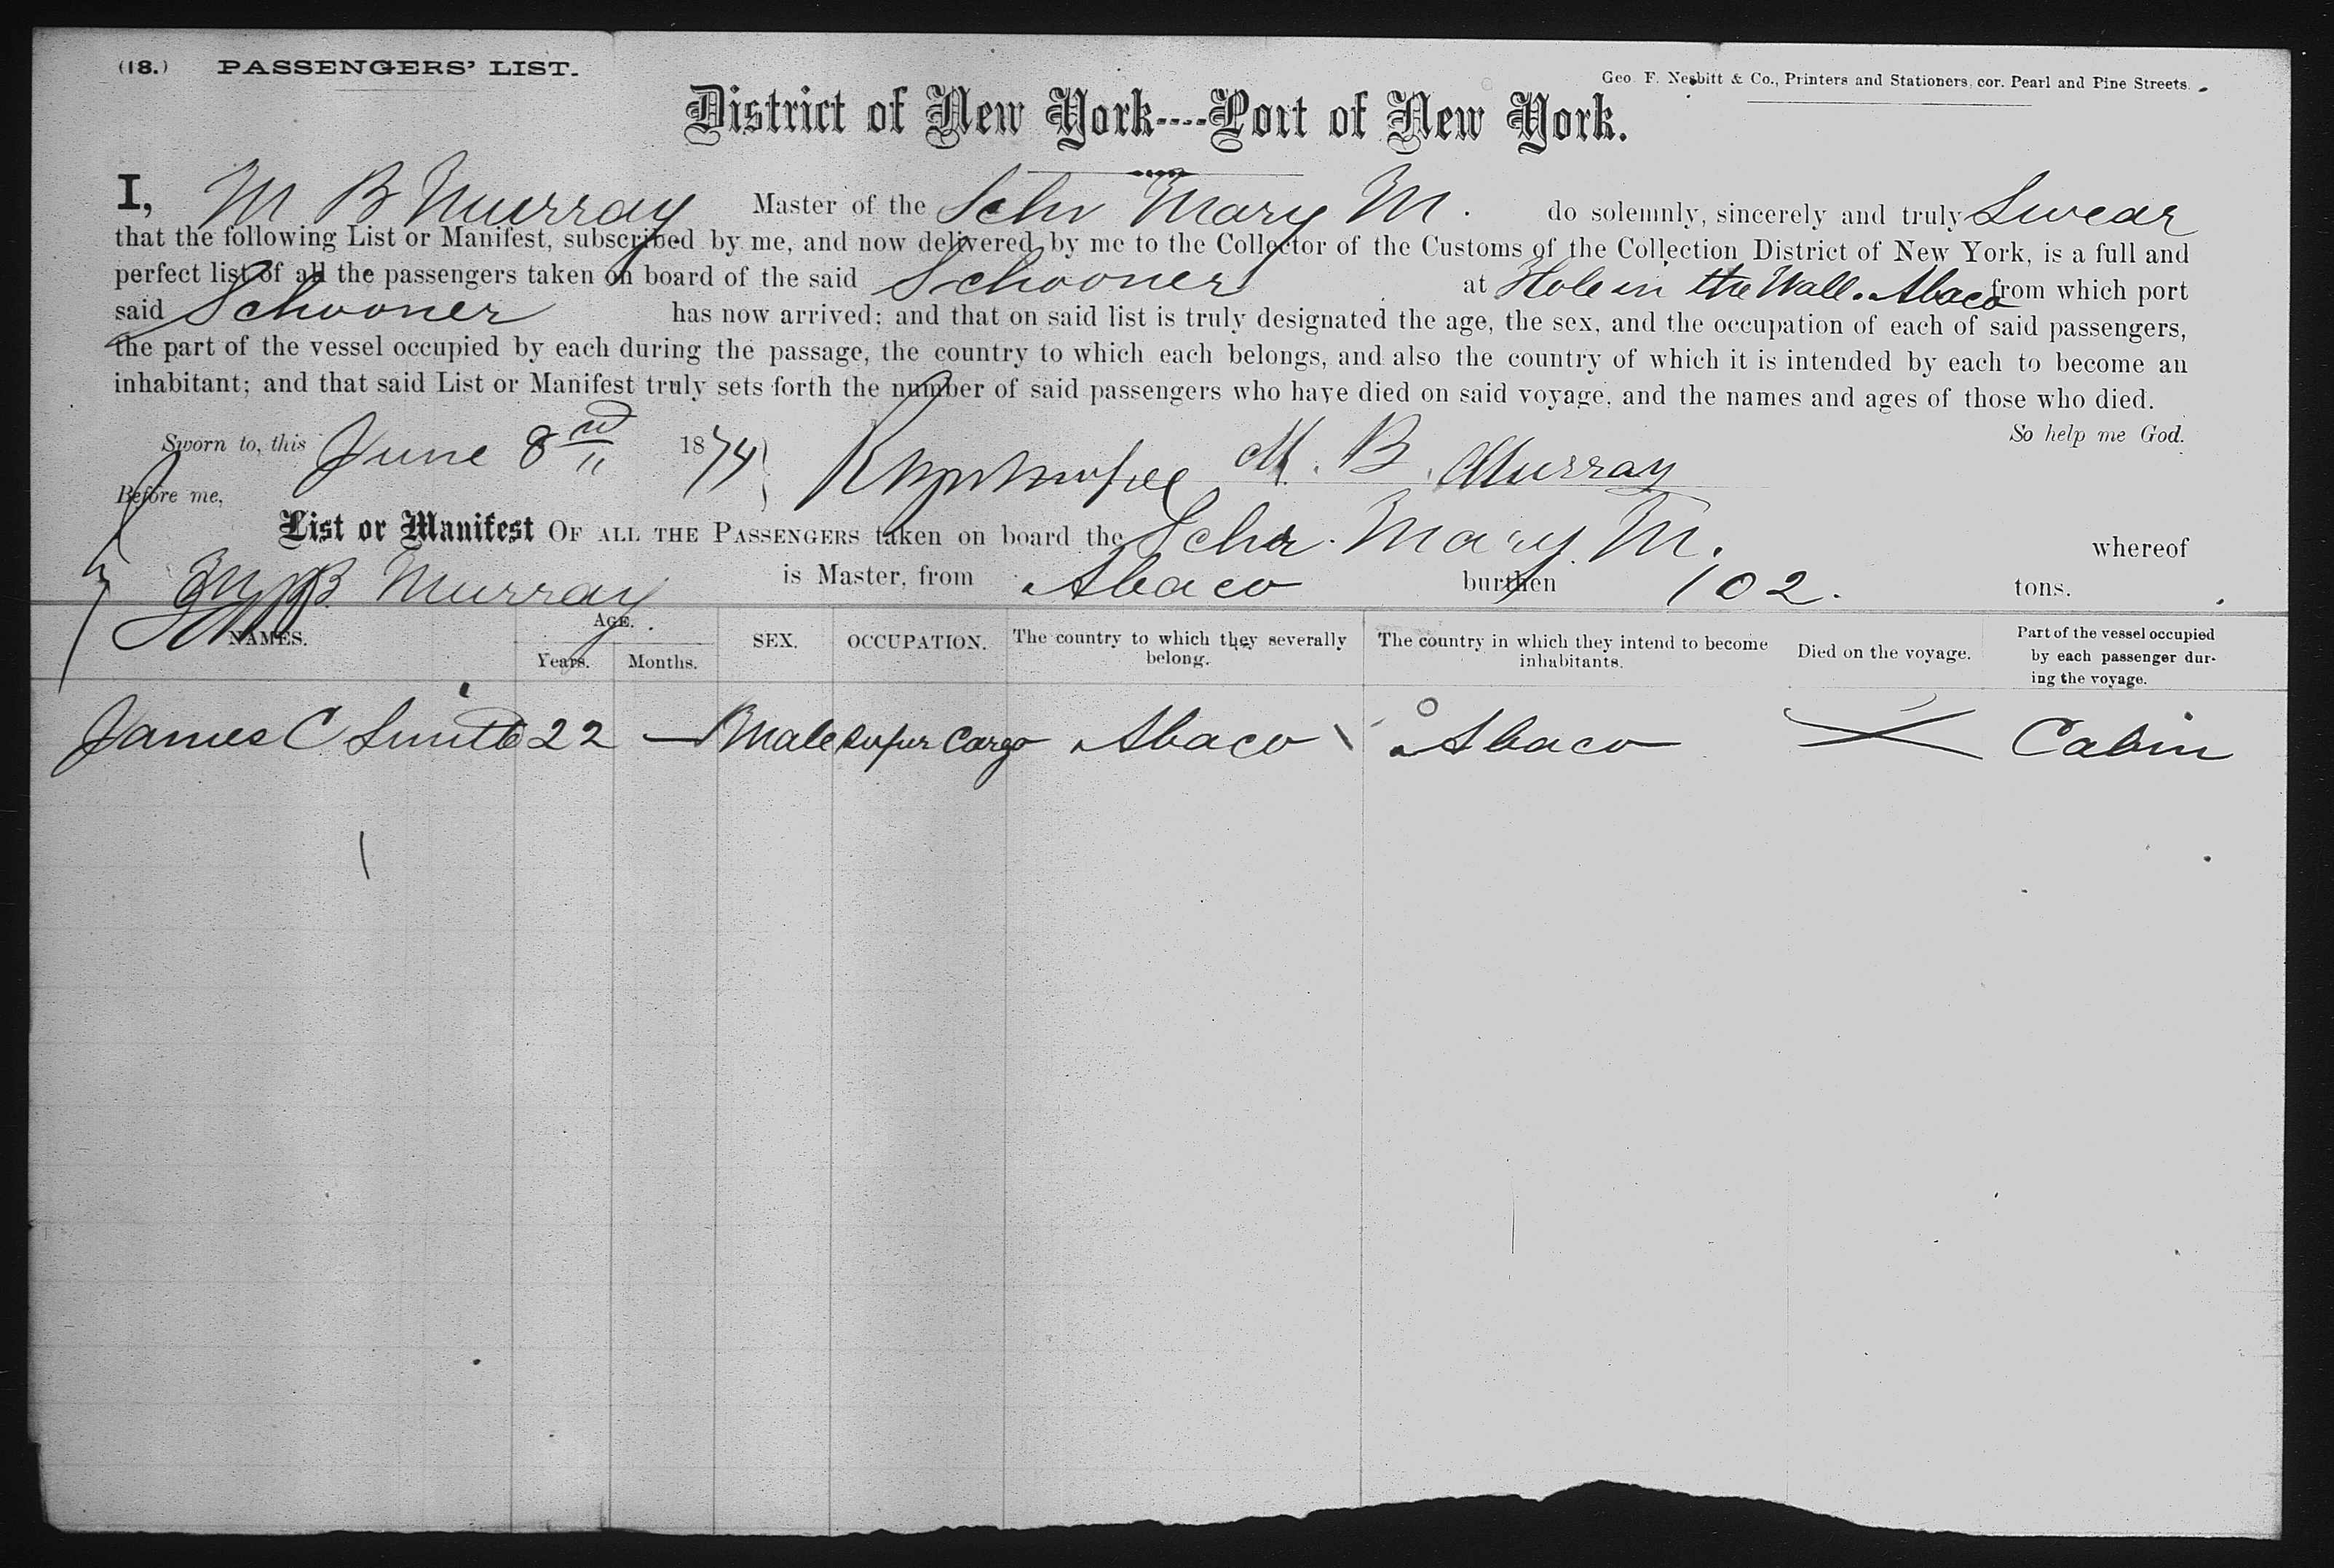 (18.) PASSENGERS' LIST.
Geo. F. Nesbitt & Co., Printers and Stationers, cor. Pearl and Pine Streets.
District of New York----Port of New York.
I, M B Murray Master of the Schr Mary M. do solemnly, sincerely and truly Swear
that the following List or Manifest, subscribed by me, and now delivered by me to the Collector of the Customs of the Collection District of New York, is a full and
perfect list of all the passengers taken on board of the said Schooner at Hole in the Wall. Abaco from which port
said Schooner has now arrived; and that on said list is truly designated the age, the sex, and the occupation of each of said passengers,
the part of the vessel occupied by each during the passage, the country to which each belongs, and also the country of which it is intended by each to become an
inhabitant; and that said List or Manifest truly sets forth the number of said passengers who have died on said voyage, and the names and ages of those who died.
So help me God.
Sworn to, this June 8 1874 M. B. Murray
Before me,
List or Manifest OF ALL THE PASSENGERS taken on board the Schr. Mary. M. whereof
M B Murray is Master, from Abaco burthen 102. tons.
NAMES. AGE. Years. Months. SEX. OCCUPATION. The country to which they severally belong. The country in which they intend to become inhabitants. Died on the voyage. Part of the vessel occupied by each passenger during the voyage.
James C Smith 22 — Male Super Cargo Abaco Abaco Cabin